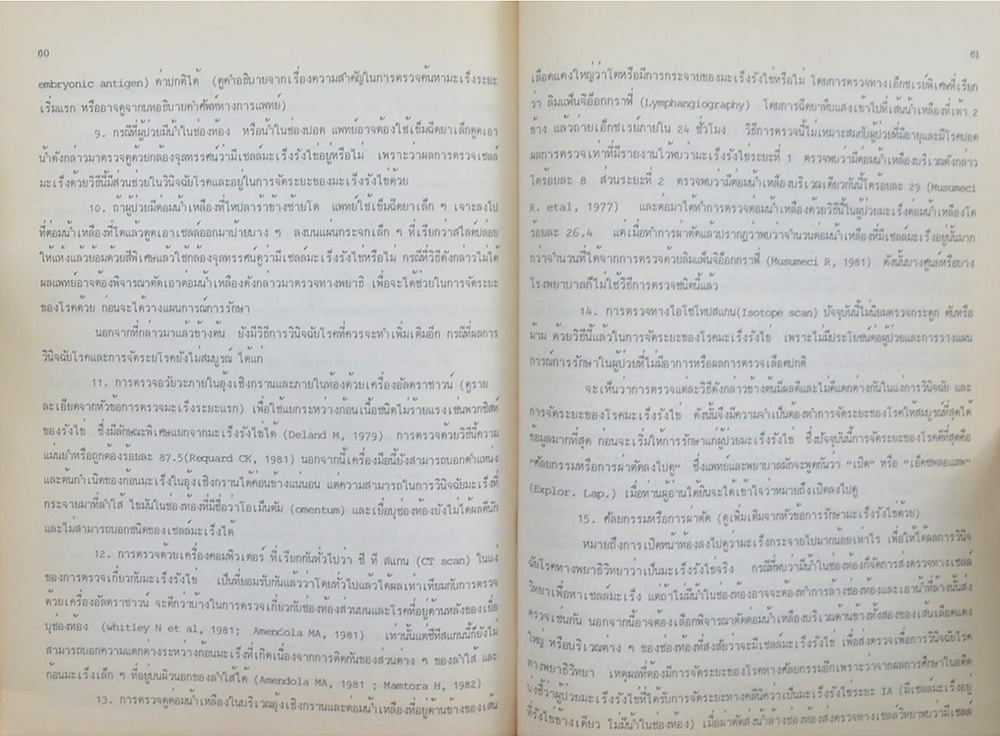 60
embryonic antigen) ค่าปกติได้ (ดูคำอธิบายจากเรื่องความสำคัญในการตรวจค้นหามะเร็งระยะ
เริ่มแรก หรืออาจดูจากบทอธิบายคำศัพท์ทางการแพทย์)
9. กรณีที่ผู้ป่วยมีน้ำในช่องท้อง หรือน้ำในช่องปอด แพทย์อาจต้องใช้เข็มฉีดยาเล็กดูดเอา
น้ำดังกล่าวมาตรวจดูด้วยกล้องจุลทรรศน์ว่ามีเซลล์มะเร็งรังไข่อยู่หรือไม่ เพราะว่าผลการตรวจเซลล์
มะเร็งด้วยวิธีนี้มีส่วนช่วยในวินิจฉัยโรคและอยู่ในการจัดระยะของมะเร็งรังไข่ด้วย
10. ถ้าผู้ป่วยมีต่อมน้ำเหลืองที่ไหปลาร้าข้างซ้ายโต แพทย์ใช้เข็มฉีดยาเล็ก ๆ เจาะลงไป
ที่ต่อมน้ำเหลืองที่โตแล้วดูดเอาเซลล์ออกมาป้ายบาง ๆ ลงบนแผ่นกระจกเล็ก ๆ ที่เรียกว่าสไลด์ปล่อย
ให้แห้งแล้วย้อมด้วยสีพิเศษแล้วใช้กล้องจุลทรรศน์ดูว่ามีเซลล์มะเร็งรังไข่หรือไม่ กรณีที่วิธีดังกล่าวไม่ได้
ผลแพทย์อาจต้องพิจารณาตัดเอาต่อมน้ำเหลืองดังกล่าวมาตรวจทางพยาธิ เพื่อจะได้ช่วยในการจัดระยะ
ของโรคด้วย ก่อนจะได้วางแผนการณ์การรักษา
นอกจากที่กล่าวมาแล้วข้างต้น ยังมีวิธีการวินิจฉัยโรคที่ควรจะทำเพิ่มเติมอีก กรณีที่ผลการ
วินิจฉัยโรคและการจัดระยะโรคยังไม่สมบูรณ์ ได้แก่
11. การตรวจอวัยวะภายในอุ้งเชิงกรานและภายในท้องด้วยเครื่องอัลตราซาวน์ (ดูราย
ละเอียดจากหัวข้อการตรวจมะเร็งระยะแรก) เพื่อใช้แยกระหว่างก้อนเนื้อชนิดไม่ร้ายแรงเช่นพวกซิสท์
ของรังไข่ ซึ่งมีลักษณะพิเศษแยกจากมะเร็งรังไข่ได้ (Deland M, 1979) การตรวจด้วยวิธีนี้ความ
แม่นยำหรือถูกต้องร้อยละ 87.5(Requard CK, 1981) นอกจากนี้เครื่องมือนี้ยังสามารถบอกตำแหน่ง
และต้นกำเนิดของก้อนมะเร็งในอุ้งเชิงกรานได้ค่อนข้างแน่นอน แต่ความสามารถในการวินิจฉัยมะเร็งที่
กระจายมาที่ลำใส้ ไขมันในช่องท้องที่มีชื่อว่าโอเม็นตัม (omentum) และเยื่อบุช่องท้องยังไม่ได้ผลดีนัก
และไม่สามารถบอกชนิดของเซลล์มะเร็งได้
12. การตรวจด้วยเครื่องคอมพิวเตอร์ ที่เรียกกันทั่วไปว่า ซี ที สแกน (CT scan) ในแง่
ของการตรวจเกี่ยวกับมะเร็งรังไข่ เป็นที่ยอมรับกันแล้วว่าโดยทั่วไปแล้วได้ผลเท่าเทียมกับการตรวจ
ด้วยเครื่องอัลตราซาวน์ จะดีกว่าบ้างในการตรวจเกี่ยวกับช่องท้องส่วนบนและโรคที่อยู่ด้านหลังของเยื่อ
บุช่องท้อง (whitley N et al, 1981; Amendola MA, 1981) เท่านั้นแต่ซีทีสแกนนี้ก็ยังไม่
สามารถบอกความแตกต่างระหว่างก้อนมะเร็งที่เกิดเนื่องจากการติดกันของส่วนต่าง ๆ ของลำใส้ และ
ก้อนมะเร็งเล็ก ๆ ที่อยู่บนผิวนอกของลำใส้ได้ (Amendola MA, 1981 ; Mamtora H, 1982)
13. การตรวจดูต่อมน้ำเหลืองในบริเวณอุ้งเชิงกรานและต่อมน้ำเหลืองที่อยู่ด้านขางของเส้น
61
เลือดแดงใหญ่ว่าโตหรือมีการกระจายของมะเร็งรังไข่หรือไม่ โดยการตรวจทางเอ็กซเรย์พิเศษที่เรียก
ว่า ลิมแพ็นจิอ็อกกราฟี่ (Lymphangiography) โดยการฉีดยาทึบแสงเข้าไปที่เส้นน้ำเหลืองที่เท้า 2
ข้าง แล้วถ่ายเอ็กซเรย์ภายใน 24 ชั่วโมง วิธีการตรวจนี้ไม่เหมาะสมกับผู้ป่วยที่มีอายุและมีโรคปอด
ผลการตรวจเท่าที่มีรายงานไว้พบว่ามะเร็งรังไข่ระยะที่ 1 ตรวจพบว่ามีต่อมน้ำเหลืองบริเวณดังกล่าว
โตร้อยละ 8 ส่วนระยะที่ 2 ตรวจพบว่ามีต่อมน้ำเหลืองบริเวณเดียวกันนี้โตร้อยละ 29 (Musumeci
R. etal, 1977) และต่อมาได้ทำการตรวจต่อมน้ำเหลืองด้วยวิธีนี้ในผู้ป่วยมะเร็งต่อมน้ำเหลืองโต
ร้อยละ 26.4 แต่เมื่อทำการผ่าตัดแล้วปรากฏว่าพบว่าจำนวนต่อมน้ำเหลืองที่มีเซลล์มะเร็งอยู่นั้นมาก
กว่าจำนวนที่ได้จากการตรวจด้วยลิมแพ็นจิอ็อกกราฟี่ (Musumeci R, 1981) ดังนั้นบางศูนย์หรือบาง
โรงพยาบาลก็ไม่ใช้วิธีการตรวจชนิดนี้แล้ว
14. การตรวจทางไอโซโทปสแกน(Isotope scan) ปัจจุบันนี้ไม่นิยมตรวจกระดูก ตับหรือ
ม้าม ด้วยวิธีนี้แล้วในการจัดระยะของโรคมะเร็งรังไข่ เพราะไม่มีประโยชน์ต่อผู้ป่วยและการวางแผน
การณ์การรักษาในผู้ป่วยที่ไม่มีอาการหรือผลการตรวจเลือดปกติ
จะเห็นว่าการตรวจแต่ละวิธีดังกล่าวข้างต้นมีผลดีและไม่ดีแตกต่างกันในแง่การวินิจฉัย และ
การจัดระยะของโรคมะเร็งรังไข่ ดังนั้นจึงมีความจำเป็นต้องทำการจัดระยะของโรคให้สมบูรณ์ที่สุดได้
ข้อมูลมากที่สุด ก่อนจะเริ่มให้การรักษาแก่ผู้ป่วยมะเร็งรังไข่ ซึ่งปัจจุบันนี้การจัดระยะของโรคดีที่สุดคือ
"ศัลยกรรมหรือการผ่าตัดลงไปดู" ซึ่งแพทย์และพยาบาลมักจะพูดกันว่า "เปิด" หรือ "เอ็คซพลอแลพ"
(Explor. Lap.) เมื่อท่านผู้อ่านได้ยินจะได้เข้าใจว่าหมายถึงเปิดลงไปดู
15. ศัลยกรรมหรือการผ่าตัด (ดูเพิ่มเติมจากหัวข้อการรักษามะเร็งรังไข่ด้วย)
หมายถึงการเปิดหน้าท้องลงไปดูว่ามะเร็งกระจายไปมากน้อยเท่าไร เพื่อให้ได้ผลการวินิจ
ฉัยโรคทางพยาธิวิทยาว่าเป็นมะเร็งรังไข่จริง กรณีที่พบว่ามีน้ำในช่องท้องก็จัดการส่งตรวจทางเซลล์
วิทยาเพื่อหาเซลล์มะเร็ง แต่ถ้าไม่มีน้ำในช่องท้องอาจจะต้องทำการล้างช่องท้องและเอาน้ำที่ล้างนั้นส่ง
ตรวจเช่นกัน นอกจากนี้อาจต้องเลือกพิจารณาตัดต่อมน้ำเหลืองบริเวณด้านข้างทั้งสองของเส้นเลือดแดง
ใหญ่ หรือบริเวณต่าง ๆ ของช่องท้องที่สงสัยว่าจะมีเซลล์มะเร็งรังไข่ เพื่อส่งตรวจเพื่อการวินิจฉัยโรค
ทางพยาธิวิทยา เหตุผลที่ต้องมีการจัดระยะของโรคทางศัลยกรรมอีกเพราะว่าจากผลการศึกษาในอดีต
บ่งชี้ว่าผู้ป่วยมะเร็งรังไข่ที่ได้รับการจัดระยะทางคลินิคว่าเป็นมะเร็งรังไข่ระยะ IA (มีเซลล์มะเร็งอยู่
ที่รังไข่ข้างเดียว ไม่มีน้ำในช่องท้อง) เมื่อผ่าตัดส่งน้ำล้างช่องท้องส่งตรวจทางเซลล์วิทยาพบว่ามีเซลล์